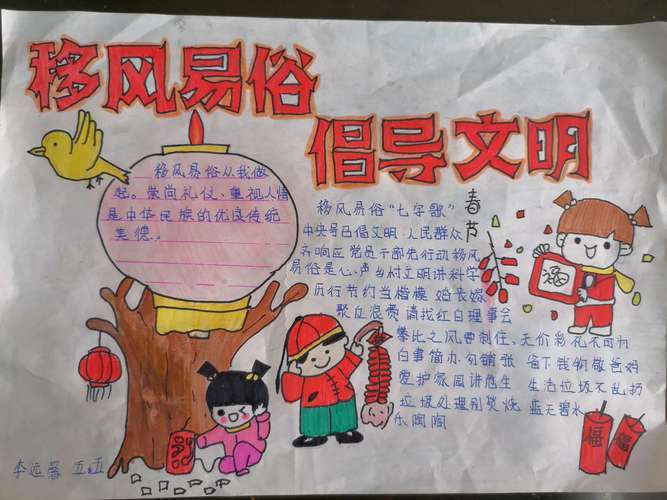 移风易俗
倡导文明
移风易俗从我做
起。崇尚礼仪、重视人情
是中华民族的优良传统
美德。
移风易俗“七字歌”
春节
中央号召倡文明 人民群众
齐响应 党员干部先行动 移风
易俗是心声 当村文明讲科学
厉行节约当楷模 婚丧嫁
聚立浪费 请找红白理事会
攀比之风要刹住、天价彩礼不可力
白事简办勿铺张 省下钱纳敬爸妈
爱护家风讲危生 生活垃圾不乱扔
垃圾处理别焚烧 蓝天碧水
乐陶陶
福
福
李远馨 五五